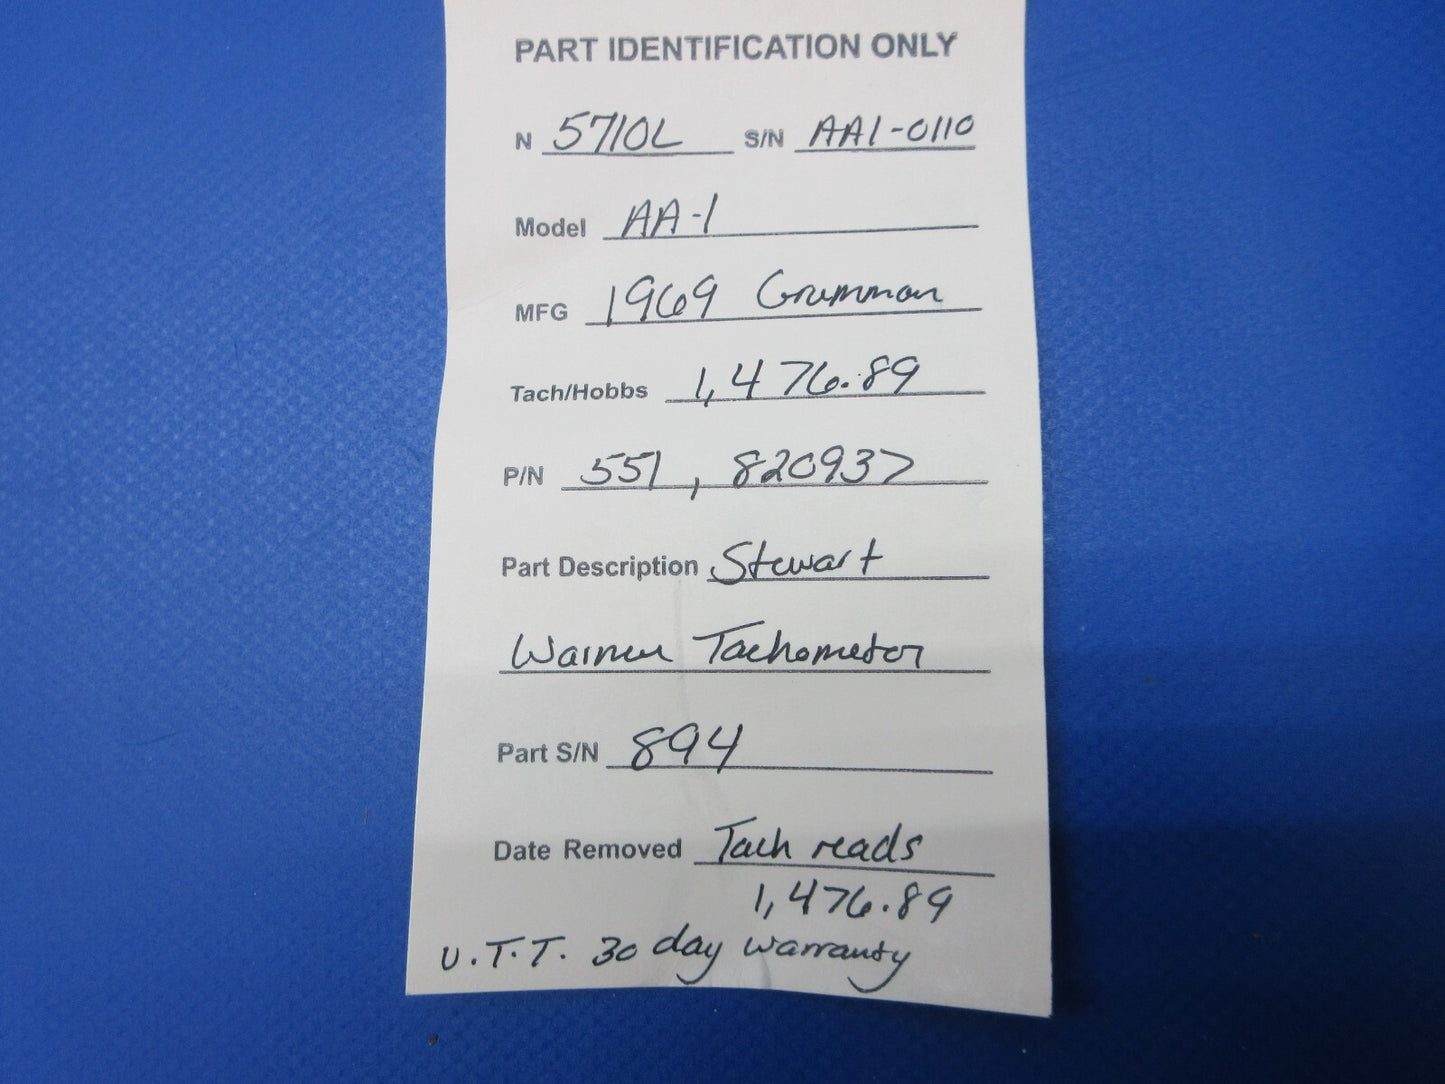 PART IDENTIFICATION ONLY
N 5710L S/N AA1-0110
Model AA-1
MFG 1969 Grumman
Tach/Hobbs 1,476.89
P/N 551, 820937
Part Description Stewart
Warner Tachometer
Part S/N 894
Date Removed Tach reads
1,476.89
U.T.T. 30 day warranty